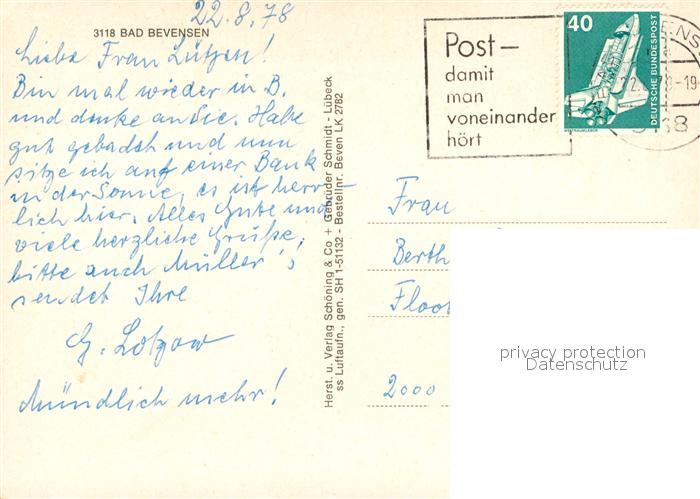 22.8.78
3118 BAD BEVENSEN
Liebe Frau Lützen!
Bin mal wieder in B.
und denke an Sie. Habe
gut gebadet und nun
sitze ich auf einer Bank
in der Sonne, es ist herr-
lich hier. Alles Gute und
viele herzliche Grüße,
bitte auch Müller's
sendet Ihre
G. Lotzow
Mündlich mehr!
Herst. u. Verlag Schöning & Co + Gebrüder Schmidt - Lübeck
ss Luftaufn., gen. SH 1-51132 - Bestellnr. Beven LK 2782
Post-
damit
man
voneinander
hört
40
DEUTSCHE BUNDESPOST
Frau
Berth
Floo
2000
privacy protection
Datenschutz